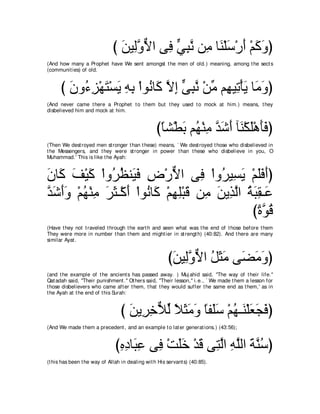 (وَكَمْ أَرْسَلْنَا مِن نَّبِيٍّ فِي الاٌّوَّلِينَ )
(And how many a Prophet have We sent amongst the men of old.) meaning, among the sects
(communities) of old.
(وَمَا يَأْتِيهِم مِّنْ نَّبِيٍّ إِلاَّ كَانُواْ بِهِ يَسْتَهْزِءُونَ )
(And never came there a Prophet to them but they used to mock at him.) means, they
disbelieved him and mock at him.
(فَأَهْلَكْنَآ أَشَدَّ مِنْهُم بَطْشاً)
(Then We destroyed men stronger than these) means, `We destroyed those who disbelieved in
the Messengers, and they were stronger in power than these who disbelieve in you, O
Muhammad.' This is like the Ayah:
(أَفَلَمْ يَسِيرُواْ فِي الاٌّرْضِ فَيَنظُرُواْ كَيْفَ كَانَ
عَـقِبَةُ الَّذِينَ مِن قَبْلِهِمْ كَانُواْ أَكْـثَرَ مِنْهُمْ وَأَشَدَّ
قُوَّةً)
(Have they not traveled through the earth and seen what was the end of those before them
They were more in number than them and mightier in strength) (40:82). And there are many
similar Ayat.
(وَمَضَى مَثَلُ الاٌّوَّلِينَ)
(and the example of the ancients has passed away. ) Mujahid said, "The way of their life."
Qatadah said, "Their punishment." Others said, "Their lesson," i.e., `We made them a lesson for
those disbelievers who came after them, that they would suffer the same end as them,' as in
the Ayah at the end of this Surah:
(فَجَعَلْنَـهُمْ سَلَفاً وَمَثَلاً لِّلاٌّخِرِينَ )
(And We made them a precedent, and an example to later generations.) (43:56);
(سُنَّةَ اللَّهِ الَّتِى قَدْ خَلَتْ فِى عِبَادِهِ)
(this has been the way of Allah in dealing with His servants) (40:85).